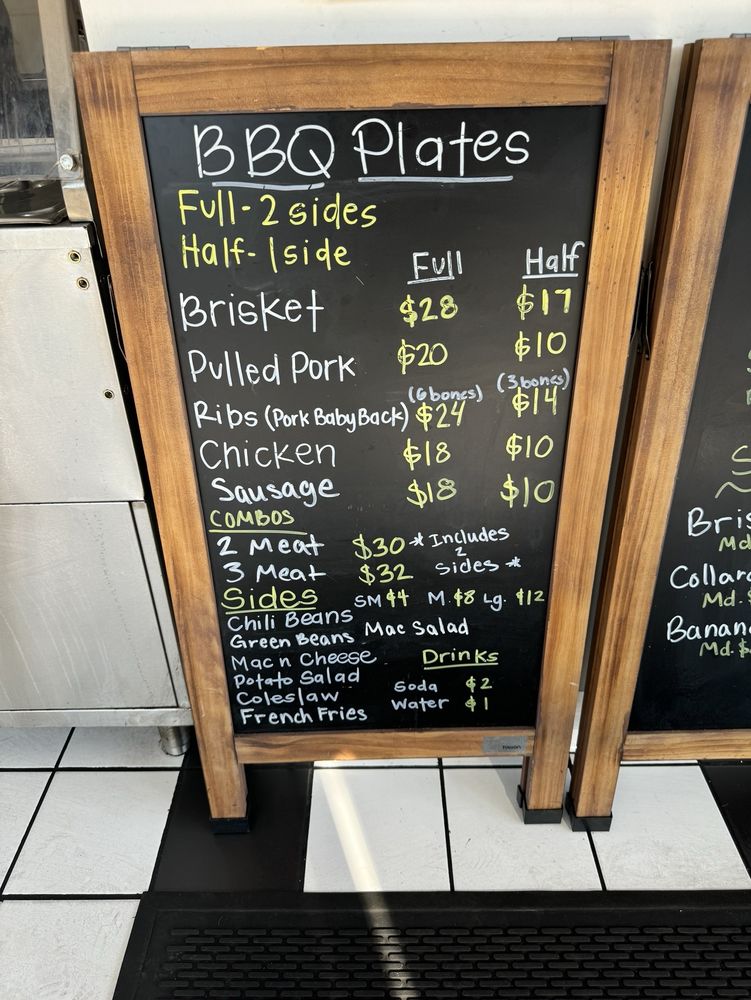 BBQ Plates
Full-2 sides
Half-1 side
Full Half
Brisket $28 $17
Pulled Pork $20 $10
(6 bones) (3 bones)
Ribs (Pork Baby Back) $24 $14
Chicken $18 $10
Sausage $18 $10
COMBOS
2 Meat $30 * Includes
2
3 Meat $32 Sides *
Sides SM $4 M. $8 Lg. $12
Chili Beans
Green Beans Mac Salad
Mac n Cheese Drinks
Potato Salad
Coleslaw Soda $2
French Fries Water $1
Bris
Md
Collar
Md. $
Banan
Md. $